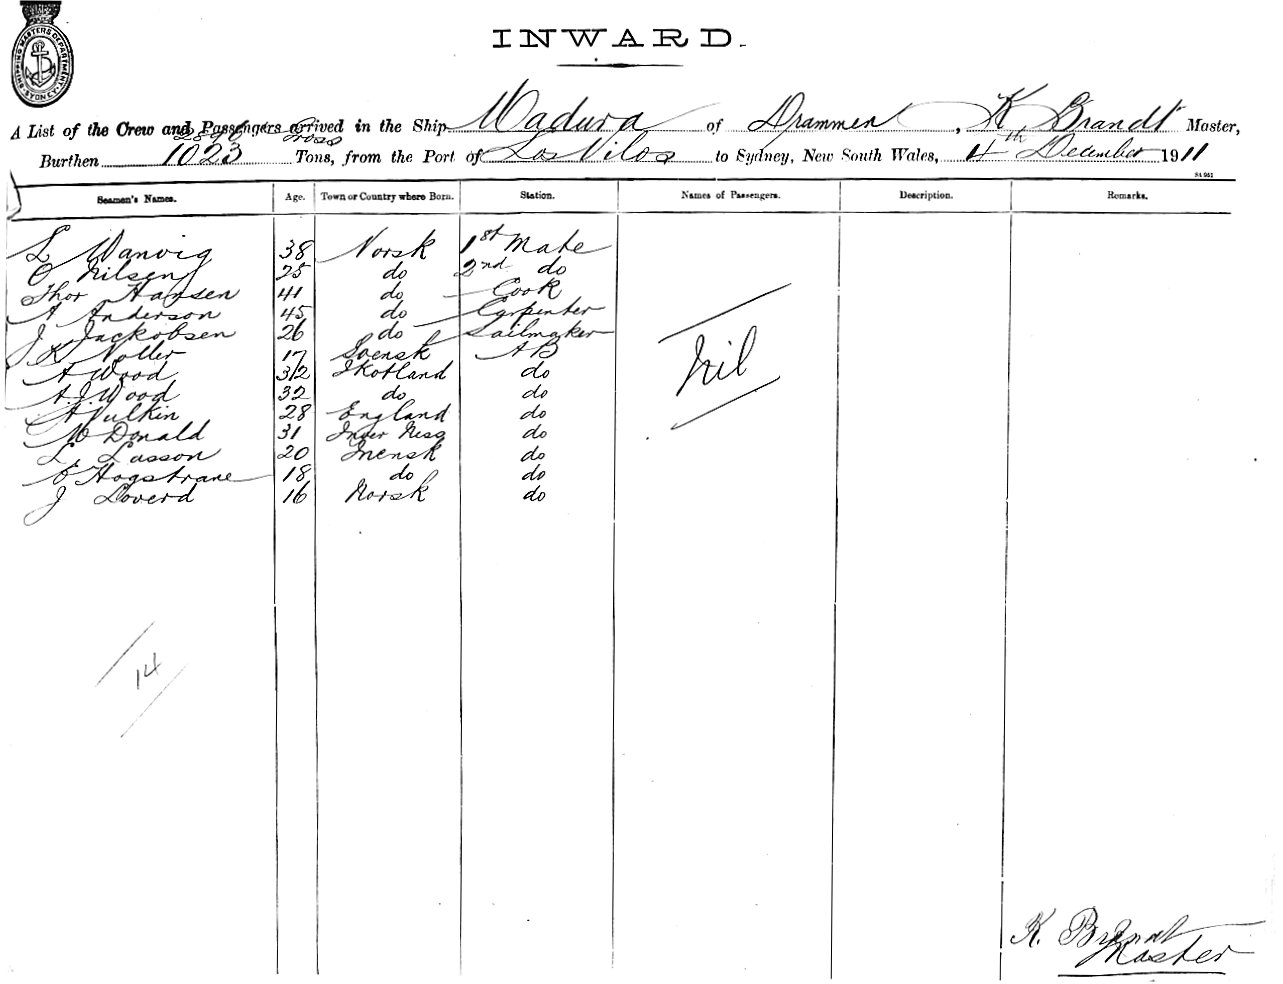 SHIPPING MASTERS DEPARTMENT SYDNEY
INWARD.
A List of the Crew and Passengers arrived in the Ship Madura of Drammen, K Brandt Master,
Gross
Burthen 1023 Tons, from the Port of Los Vilos to Sydney, New South Wales, 4th December 1911
Seamen's Names. Age. Town or Country where Born. Station. Names of Passengers. Description. Remarks.
L Wanvig 38 Norsk 1st Mate
O Nilsen 25 do 2nd do
Thor Hansen 41 do Cook
A Anderson 45 do Carpenter
J Jackobsen 26 do Sailmaker
K Noller 17 Svensk AB
A Wood 32 Skotland do
A.J. Wood 32 do do
A Vulkin 28 England do
Mc Donald 31 Inver Ness do
L. Lasson 20 do
O Hogstrane 18 do do
J Loverd 16 Norsk do
Nil
14
K. Brandt
Master